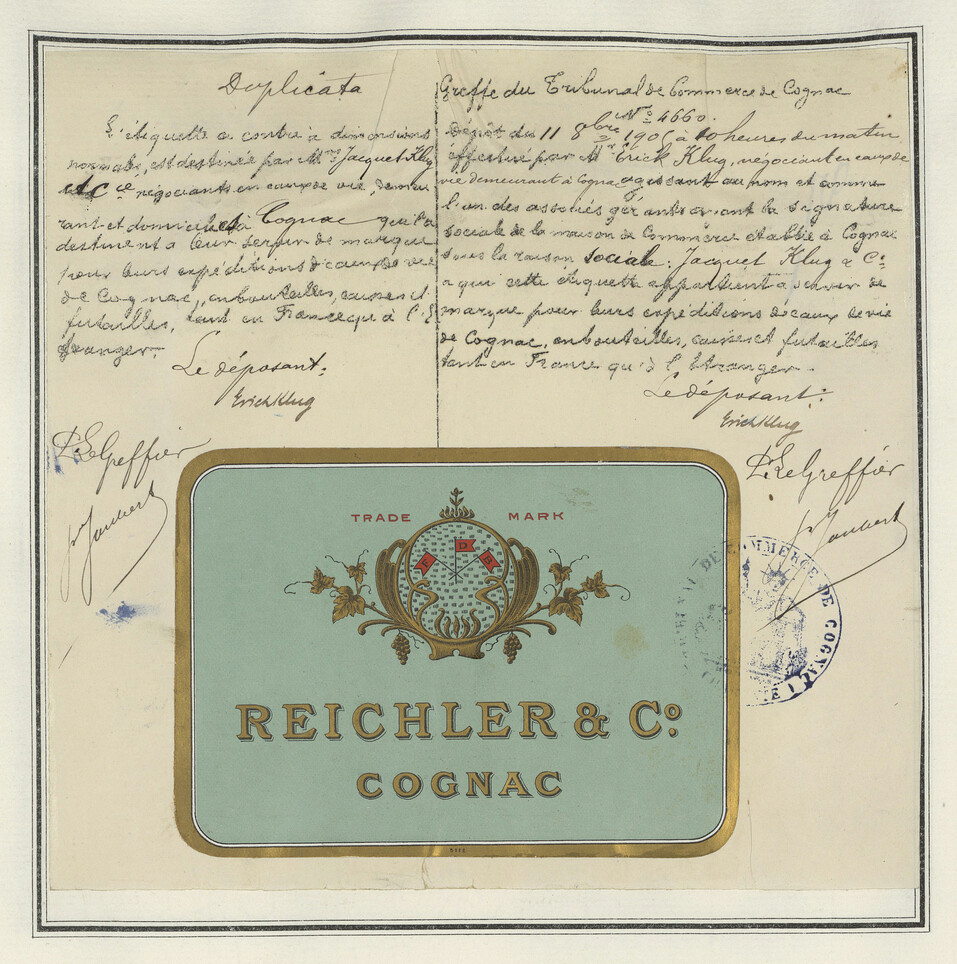 Duplicata
L'étiquette ci contre à dimensions
normale, est destinée par Mrs Jacquet Klug
et Cie négociants en eaux de vie, demeu
rant et domiciliés à Cognac qui l'a
destinent à leur servir de marque
pour leurs expéditions d'eaux de vie
de Cognac, en bouteilles, caisses et
futailles, tant en France qu'à l'É
tranger.
Le déposant:
Erich Klug
Le Greffier
Joubert
Greffe du Tribunal de Commerce de Cognac
No 4660.
Dépôt du 11 8bre 1906 à 10 heures du matin
éffectué par Mr Erick Klug, négociant en eaux de
vie demeurant à Cognac agissant au nom et comme
l'un des associés gérants ayant la signature
sociale de la maison de Commerce établie à Cognac
sous la raison sociale: Jacquet Klug & Co
a qui cette étiquette appartient à servir de
marque pour leurs expéditions de eaux de vie
de Cognac, en bouteilles, caisses et futailles
tant en France qu'à l'Etranger.
Le déposant:
Erich Klug
Le Greffier
Joubert
TRADE MARK
F D B
REICHLER & Co
COGNAC
DE COMMERCE DE COGNAC